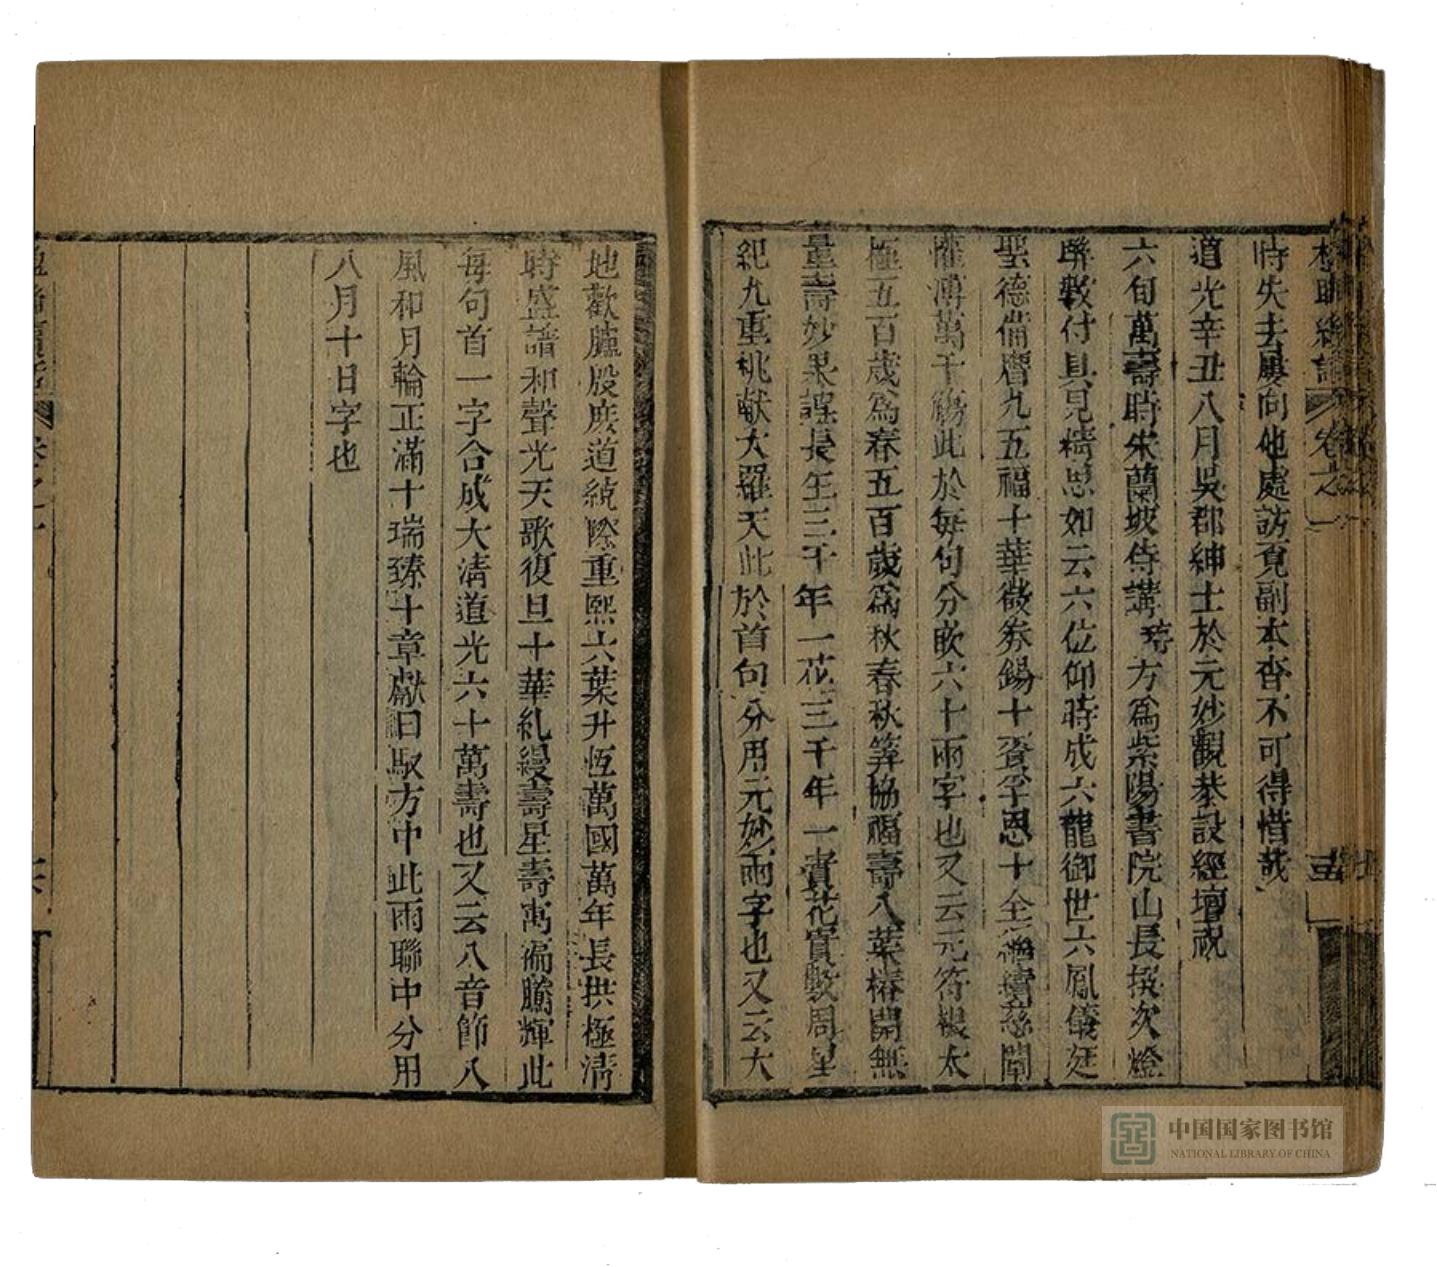 楹聯續話 卷之一
時失去屢向他處訪覓副本杳不可得惜哉
道光辛丑八月吳郡紳士於元妙觀恭設經壇祝
六旬萬壽時朱蘭坡侍講珔方爲紫陽書院山長撰次燈
聯數付具見精思如云六位仰時成六龍御世六鳳儀廷
聖德備膺九五福十華徵券錫十賚孚恩十全纘續慈闈
懽溥萬千觴此於每句分嵌六十兩字也又云元符禩太
極五百歲爲春五百歲爲秋春秋筭協福壽八葉椿開無
量壽妙果謠長生三千年一花三千年一實花實數周星
紀九重桃獻大羅天此於首句分用元妙兩字也又云大
地歡臚殷庶道統際重熙六葉升恆萬國萬年長拱極清
時盛譜和聲光天歌復旦十華糺縵壽星壽寓徧騰輝此
每句首一字合成大清道光六十萬壽也又云八音節八
風和月輪正滿十瑞臻十章獻日馭方中此兩聯中分用
八月十日字也
中国国家图书馆
NATIONAL LIBRARY OF CHINA